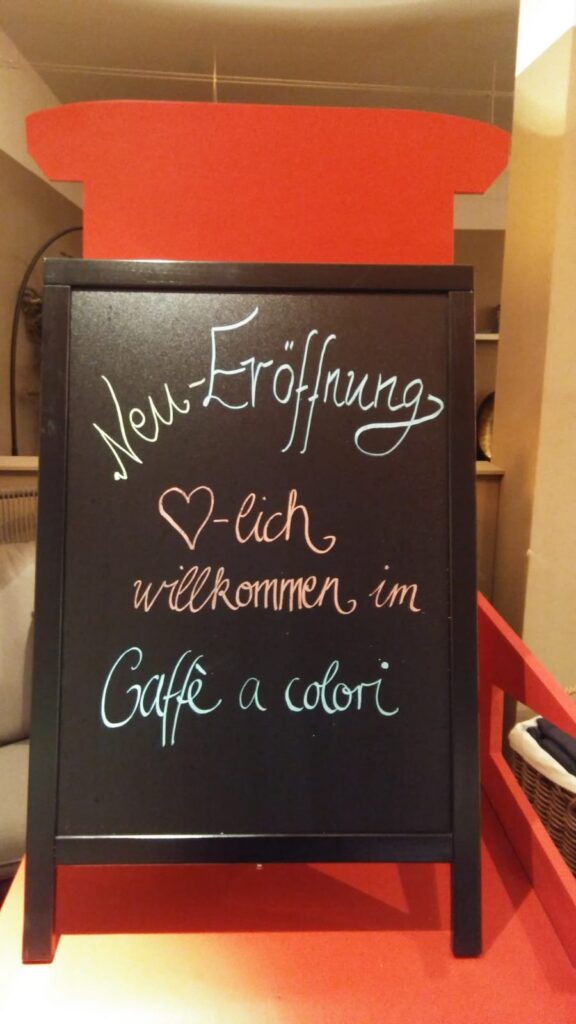 Neu-Eröffnung
♡-lich
willkommen im
Caffè a colori